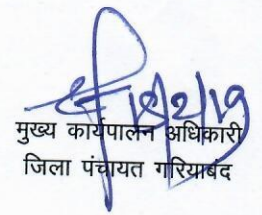 18/2/19
मुख्य कार्यपालन अधिकारी
जिला पंचायत गरियाबंद